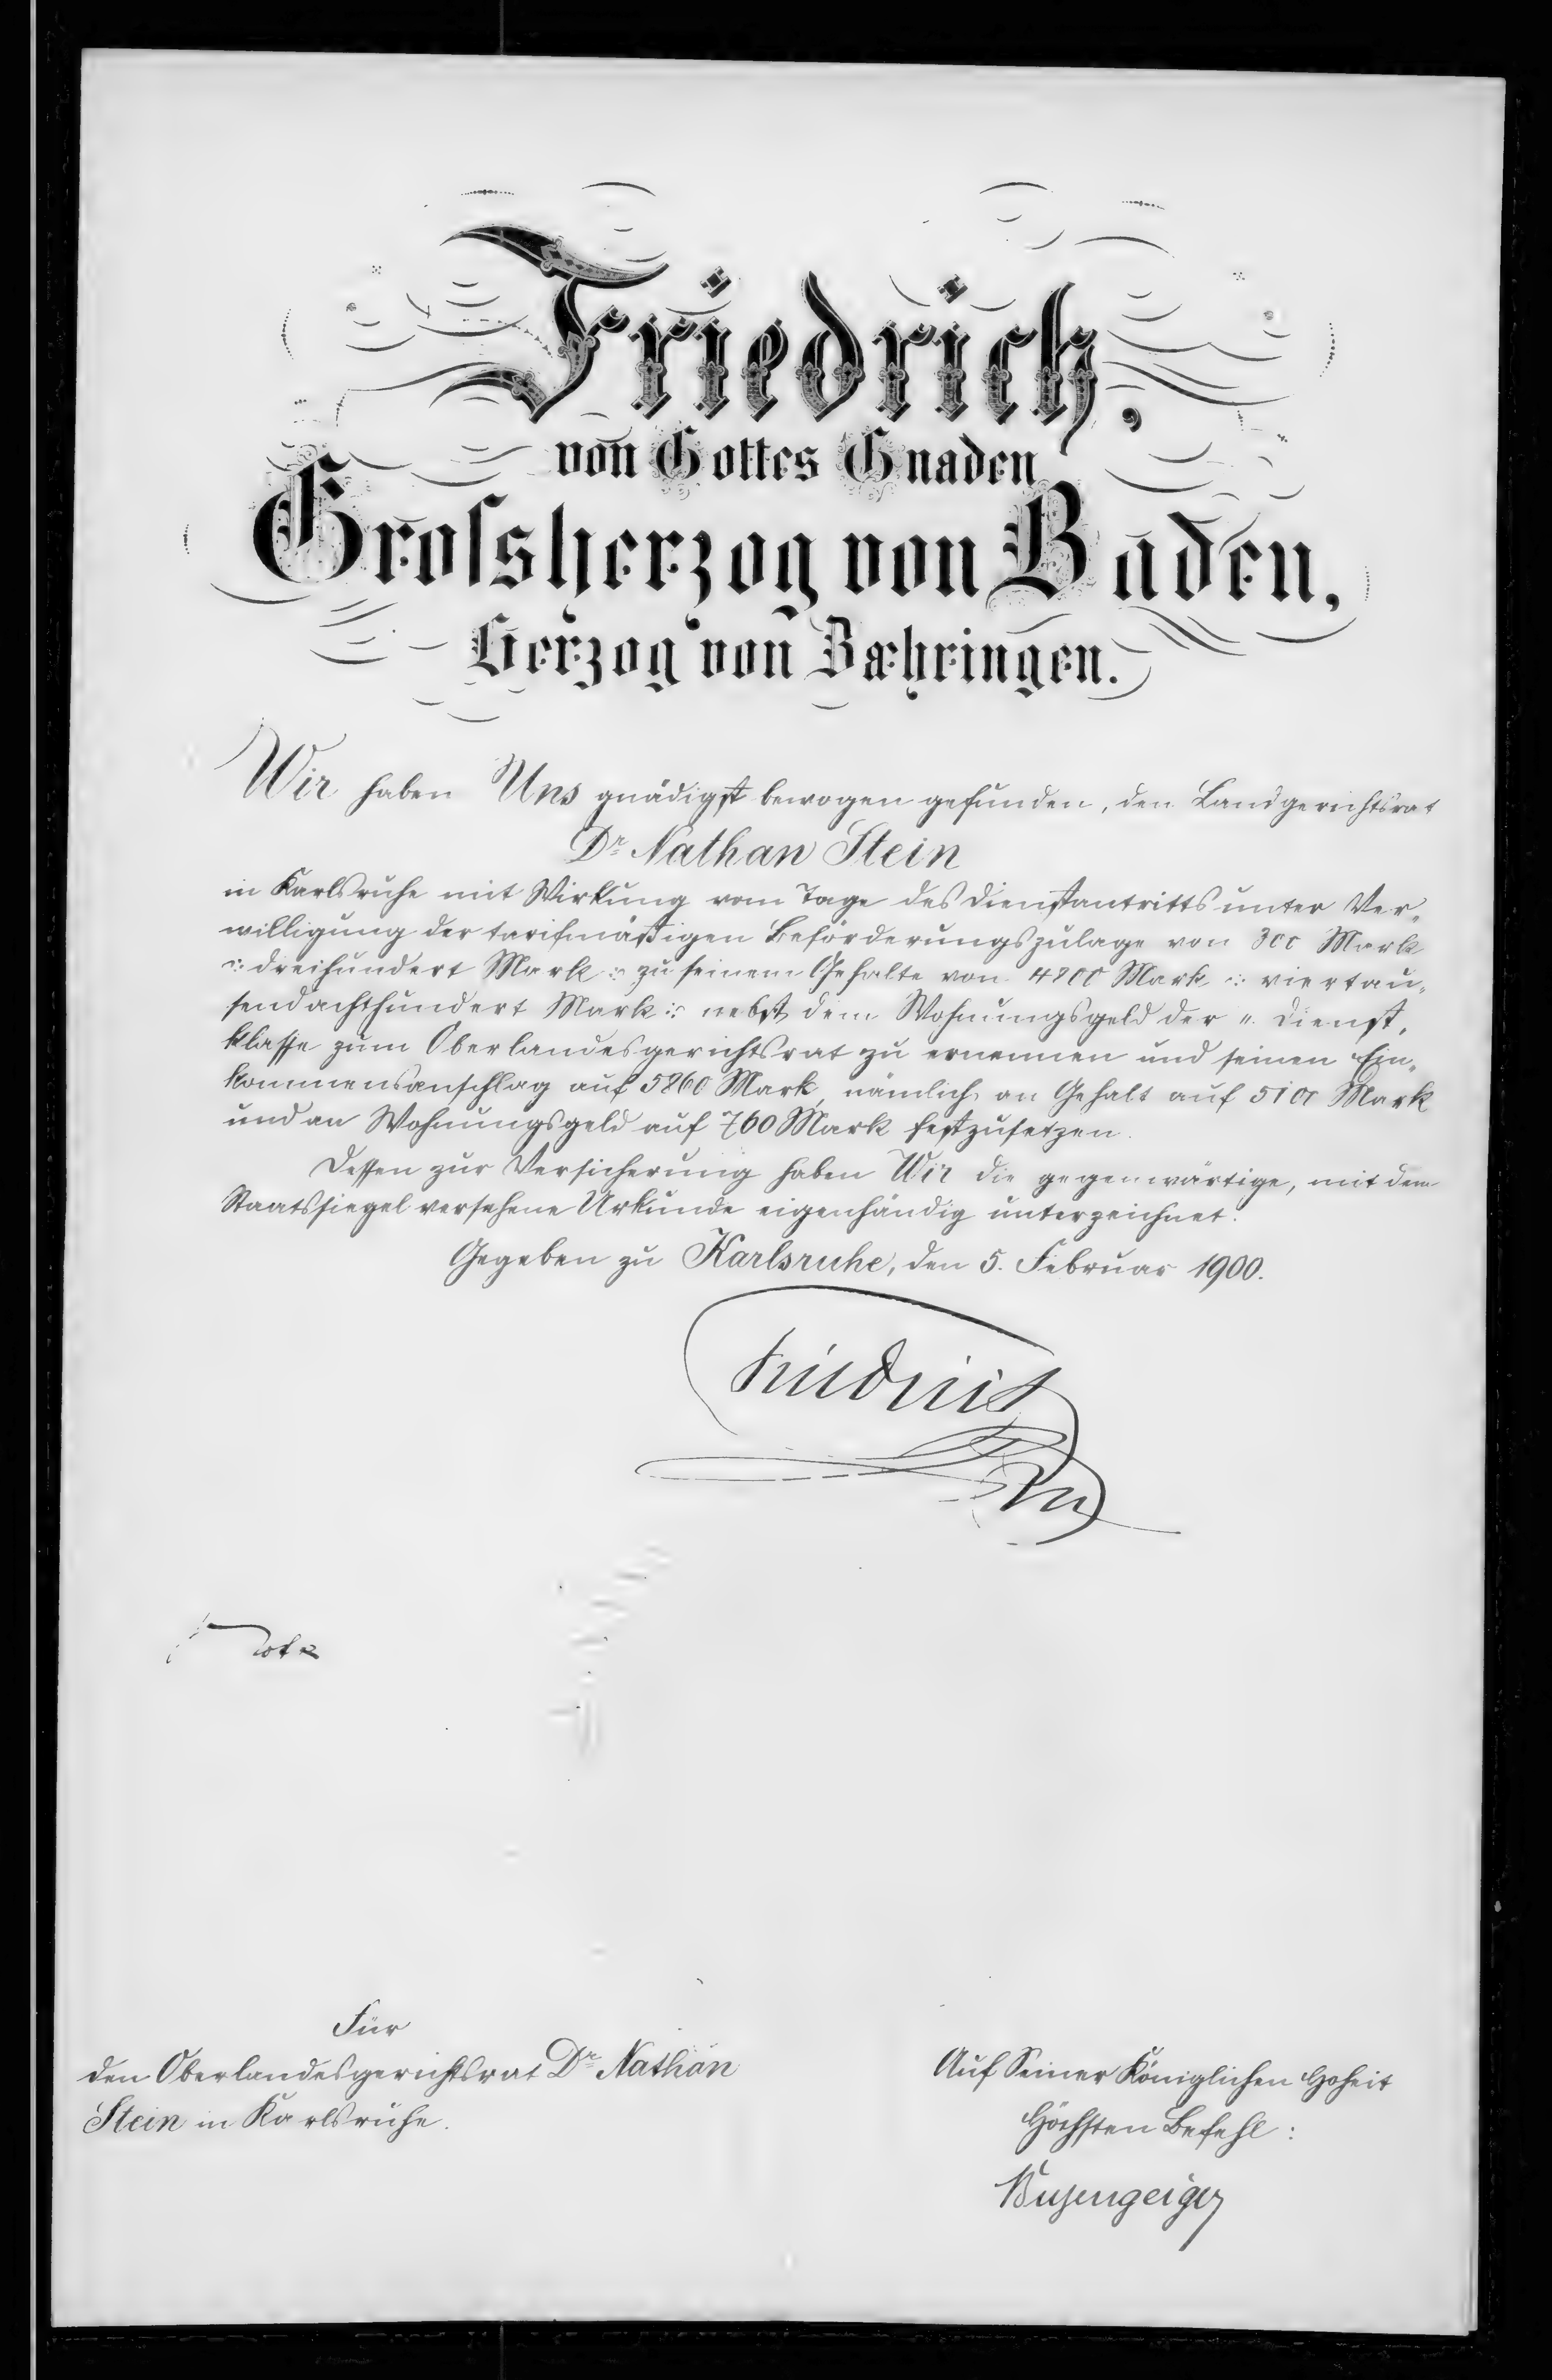 Friedrich,
von Gottes Gnaden
Grossherzog von Baden,
Herzog von Zæhringen.
Wir haben Uns gnädigst bewogen gefunden, den Landgerichtsrat
Dr. Nathan Stein
in Karlsruhe mit Wirkung vom Tage des Dienstantritts unter Ver-
willigung der tarifmäßigen Beförderungszulage von 300 Mark
:/: dreihundert Mark :/: zu seinem Gehalte von 4800 Mark :/: viertau-
sendachthundert Mark :/: nebst dem Wohnungsgeld der II. Dienst-
klasse zum Oberlandesgerichtsrat zu ernennen und seinen Ein-
kommensanschlag auf 5860 Mark, nämlich an Gehalt auf 5100 Mark
und an Wohnungsgeld auf 760 Mark festzusetzen.
Dessen zur Versicherung haben Wir die gegenwärtige, mit dem
Staatssiegel versehene Urkunde eigenhändig unterzeichnet.
Gegeben zu Karlsruhe, den 5. Februar 1900.
Friedrich
Für
den Oberlandesgerichtsrat Dr. Nathan
Stein in Karlsruhe.
Auf Seiner Königlichen Hoheit
Höchsten Befehl:
Busengeiger